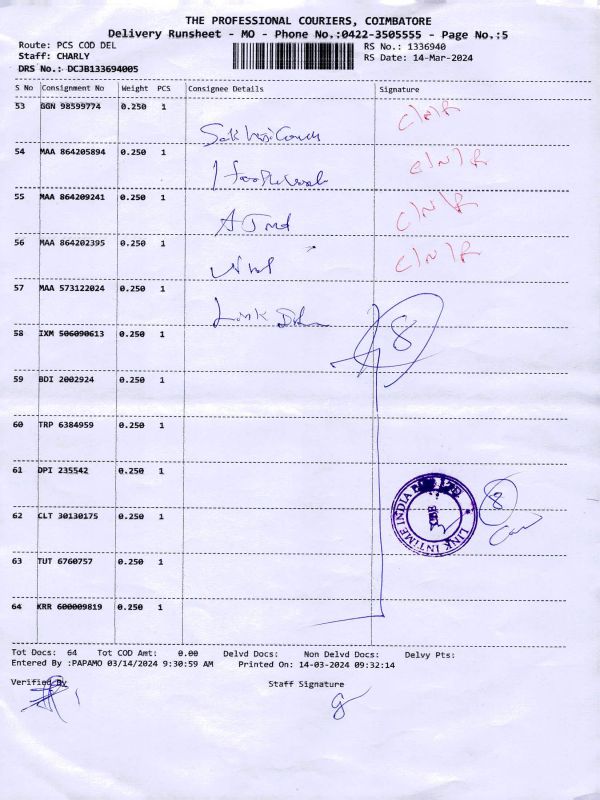 THE PROFESSIONAL COURIERS, COIMBATORE
Delivery Runsheet - MO - Phone No.:0422-3505555 - Page No.:5
Route: PCS COD DEL RS No.: 1336940
Staff: CHARLY RS Date: 14-Mar-2024
DRS No.: DCJB133694005
S No Consignment No Weight PCS Consignee Details Signature
53 GGN 98599774 0.250 1
54 MAA 864205894 0.250 1
55 MAA 864209241 0.250 1
56 MAA 864202395 0.250 1
57 MAA 573122024 0.250 1
Link
58 IXM 506090613 0.250 1
8
59 BDI 2002924 0.250 1
60 TRP 6384959 0.250 1
61 DPI 235542 0.250 1
8
62 CLT 30130175 0.250 1
LINK INTIME INDIA
63 TUT 6760757 0.250 1
64 KRR 600009819 0.250 1
Tot Docs: 64 Tot COD Amt: 0.00 Delvd Docs: Non Delvd Docs: Delvy Pts:
Entered By :PAPAMO 03/14/2024 9:30:59 AM Printed On: 14-03-2024 09:32:14
Verified By Staff Signature